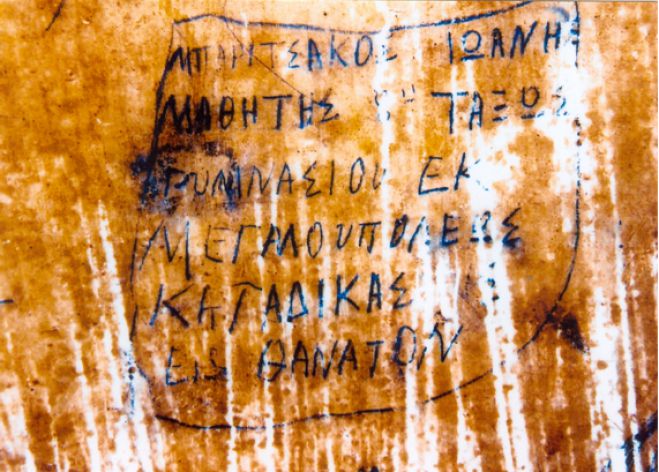 ΜΠΑΡΙΤΣΑΚΟΣ ΙΩΑΝΗΣ
ΜΑΘΗΤΗΣ 8ης ΤΑΞΩΣ
ΓΥΜΝΑΣΙΟΥ ΕΚ
ΜΕΓΑΛΟΥΠΟΛΕΩΣ
ΚΑΤΑΔΙΚΑΣ
ΕΙΣ ΘΑΝΑΤΟΝ